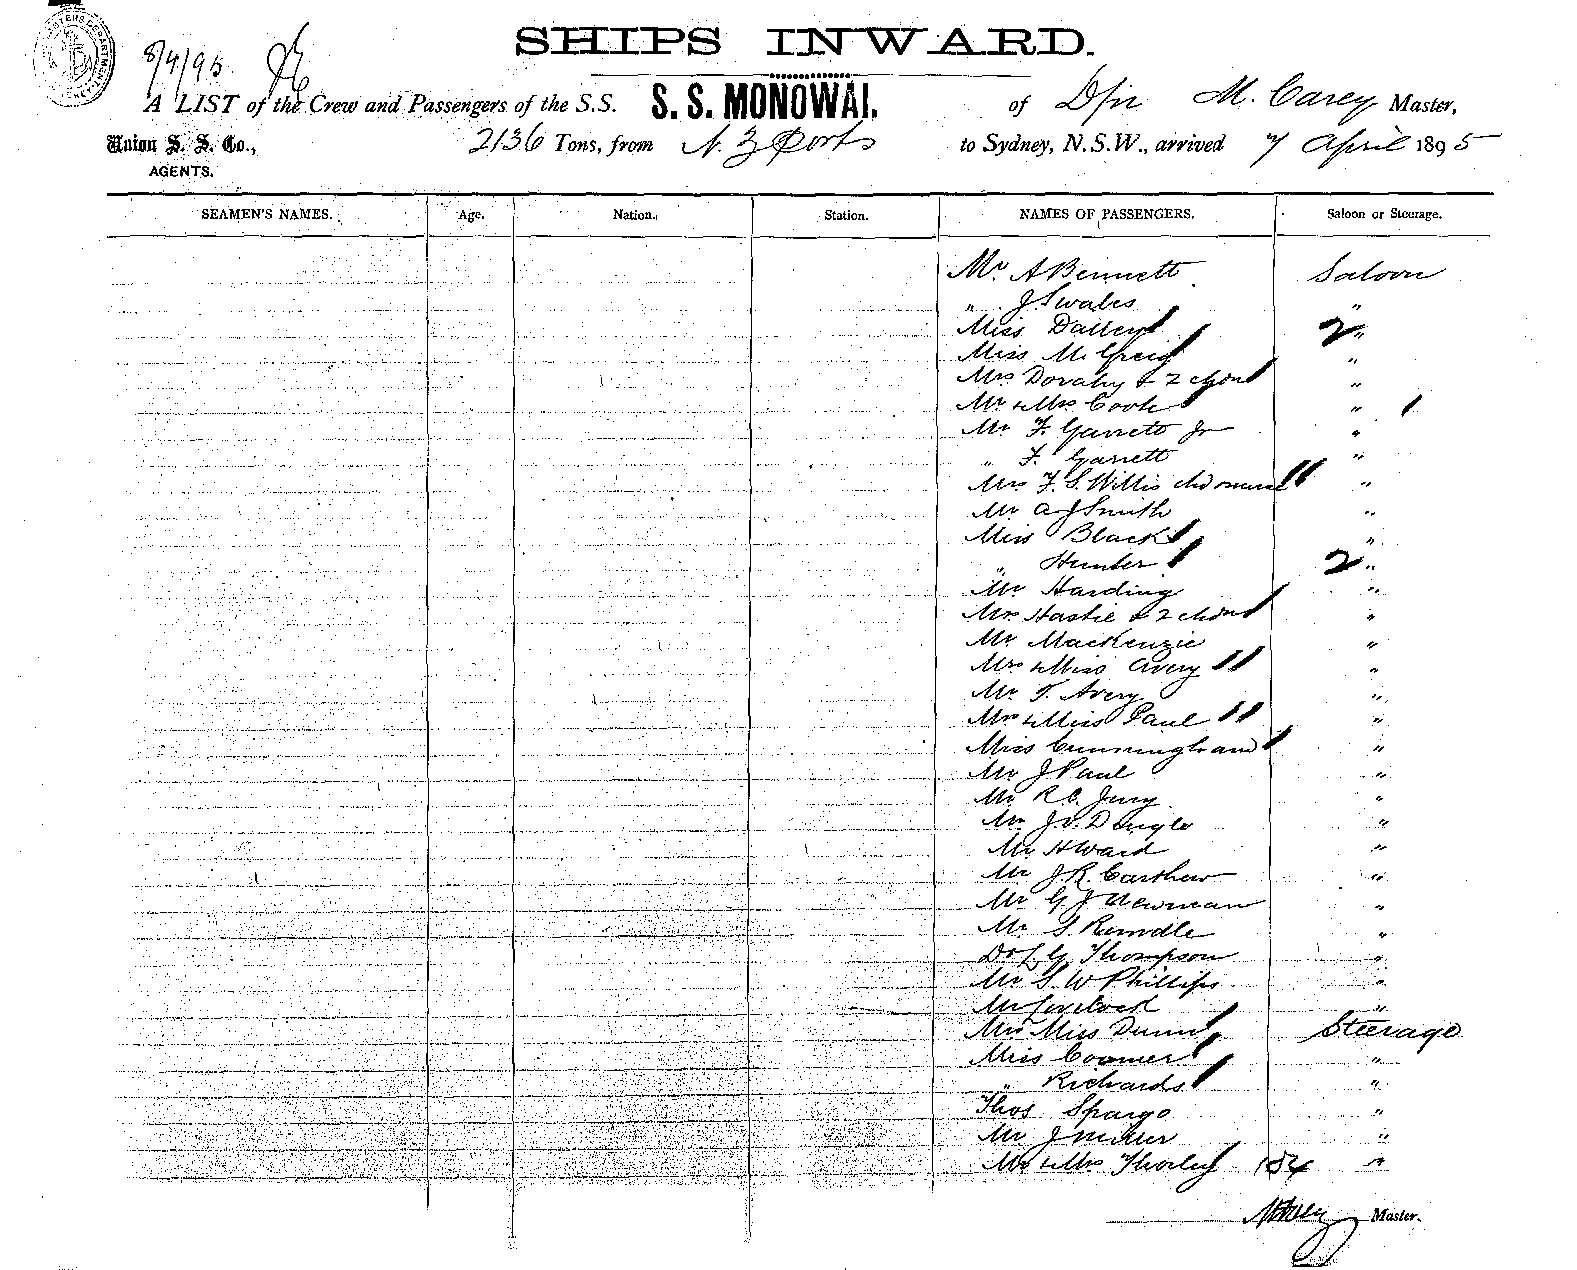 SHIPS INWARD.
8/4/95
A LIST of the Crew and Passengers of the S.S. S. S. MONOWAI. of Dfn M. Carey Master,
Union S. S. Co., 2136 Tons, from N. Z Ports to Sydney, N.S.W., arrived 7 April 1895
AGENTS.
SEAMEN'S NAMES. Age. Nation. Station. NAMES OF PASSENGERS. Saloon or Steerage.
Mr A Bennett Saloon
" J Swales "
Miss Dalley 2 "
Miss M. Greig "
Mrs Dovahy & 2 chdn "
Mr & Mrs Cook "
Mr F. Garrett Jr "
" F. Garrett "
Mrs F. S. Willis chd "
Mr A J Smith "
Miss Black "
" Hunter 2 "
Mr Harding "
Mrs Hastie & 2 chdn "
Mr MacKenzie "
Mrs & Miss Avery "
Mr T. Avery "
Mrs & Miss Paul "
Miss Cunningham "
Mr J Paul "
Mr R C. Jury "
Mr J. V. Dangle "
Mr H Ward "
Mr J. R. Carthew "
Mr G J Newman "
Mr S. Rundle "
G Thompson "
Mr S. W Phillips "
Mr Lovelock "
Mrs Miss Dunn Steerage
Miss Coomer "
" Richards "
Thos Spargo "
Mr J Miller "
Mr & Mrs Thorley 184 "
M Carey Master.